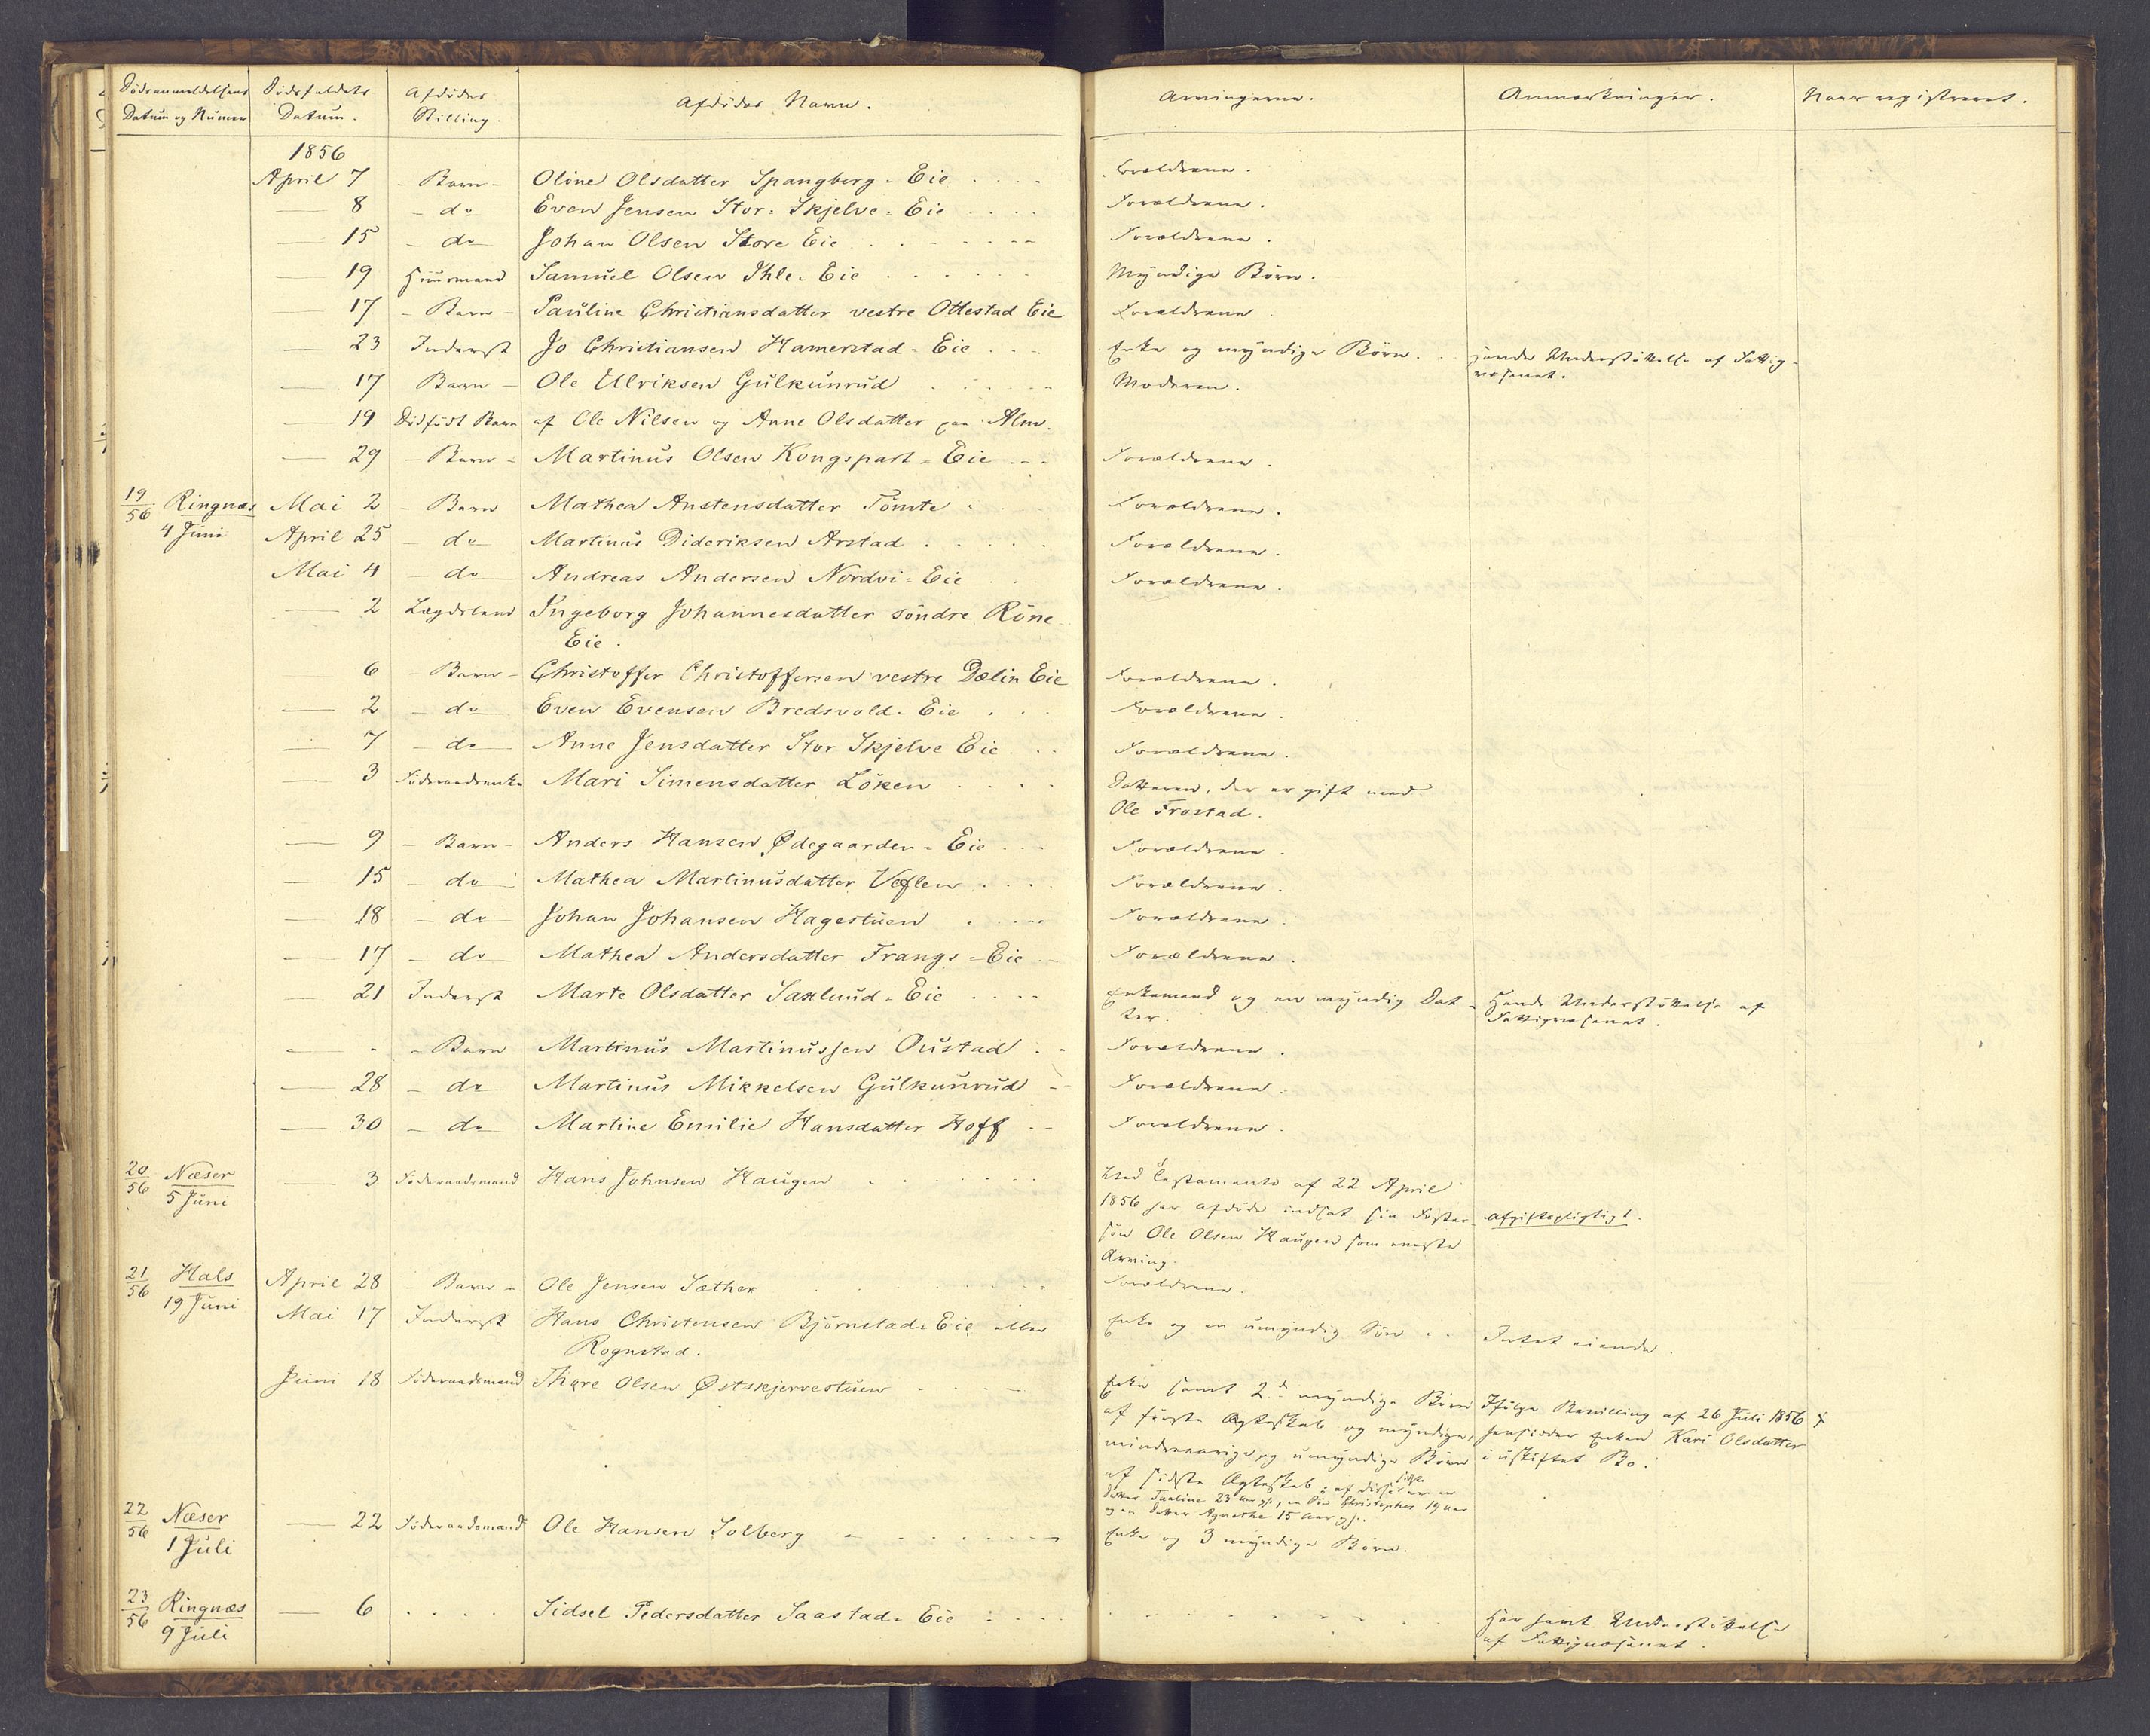 Dødsanmeldelsens Datum og Numer | Dødsfaldets Datum. | Afdødes Stilling. | Afdødes Navn. | Arvingerne. | Anmærkninger. | Naar registreret.
1856
April 7 - Barn - Oline Olsdatter Spangberg-Eie Forældrene.
8 - do Even Jensen Stor-Skjelve-Eie Forældrene.
15 - do Johan Olsen Store Eie Forældrene.
19 Huusmand Samuel Olsen Ihle-Eie Myndige Børn.
17 - Barn - Pauline Christiansdatter vestre Ottestad Eie Forældrene
23 Inderst Jo Christiansen Hamerstad-Eie Enke og myndige Børn. Havde Understøttelse af Fattig-
væsenet.
17 Barn - Ole Ulriksen Gulkunrud Moderen.
19 Dødfødt Barn af Ole Nilsen og Anne Olsdatter paa Alm.
29 - Barn - Martinus Olsen Kongspart-Eie Forældrene.
19/56 Ringnæs Mai 2 - Barn Mathea Austensdatter Tomte Forældrene.
4 Juni April 25 - do Martinus Dideriksen Arstad Forældrene.
Mai 4 - do Andreas Andersen Nordvi-Eie Forældrene.
2 Lægdslem Ingeborg Johannesdatter søndre Røne
Eie.
6 - Barn - Christoffer Christoffersen vestre Dælin Eie Forældrene.
2 - do Even Evensen Bredsvold-Eie Forældrene.
7 - do Anne Jensdatter Stor Skjelve Eie Forældrene.
3 Føderaadsenke Mari Simensdatter Løken Datteren, der er gift med
Ole Frostad.
9 - Barn - Anders Hansen Ødegaarden-Eie Forældrene.
15 - do Mathea Martinusdatter Veflen Forældrene.
18 - do Johan Johansen Hagestuen Forældrene.
17 - do Mathea Andersdatter Frangs-Eie Forældrene.
21 Inderst Marte Olsdatter Saxlund-Eie Enkemand og en myndig Dat- Havde Understøttelse af
ter. Fattigvæsenet.
- Barn Martinus Martinussen Oustad Forældrene.
28 - do Martinus Mikkelsen Gulkunrud Forældrene.
30 - do Martine Emilie Hansdatter Hoff Forældrene.
20/56 Næser 3 Føderaadsmand Hans Johnsen Haugen Ved Testamente af 22 April
5 Juni 1856 har afdøde indsat sin Foster- afgiftspligtigt.
søn Ole Olsen Haugen som eneste
Arving.
21/56 Hals April 28 - Barn - Ole Jensen Sæther Forældrene.
19 Juni Mai 17 Inderst Hans Christensen Bjørnstad-Eie eller Enke og en umyndig Søn Intet eiende.
Rognstad.
Juni 18 Føderaadsmand Thore Olsen Østskjervestuen Enke samt 2de myndige Børn Ifølge Bevilling af 26 Juli 1856
af første Ægteskab og myndige, hensidder Enken Kari Olsdatter
mindreaarige og umyndige Børn i uskiftet Bo.
af sidste Ægteskab; af disse sidste ere en
Datter Pauline 23 Aar gl., en Søn Christopher 19 Aar
og en Datter Agnethe 15 Aar gl.
22/56 Næser 22 Føderaadsmand Ole Hansen Solberg Enke og 3 myndige Børn.
1 Juli
23/56 Ringnæs 6 Sidsel Pedersdatter Saastad-Eie Har havt Understøttelse
9 Juli af Fattigvæsenet.